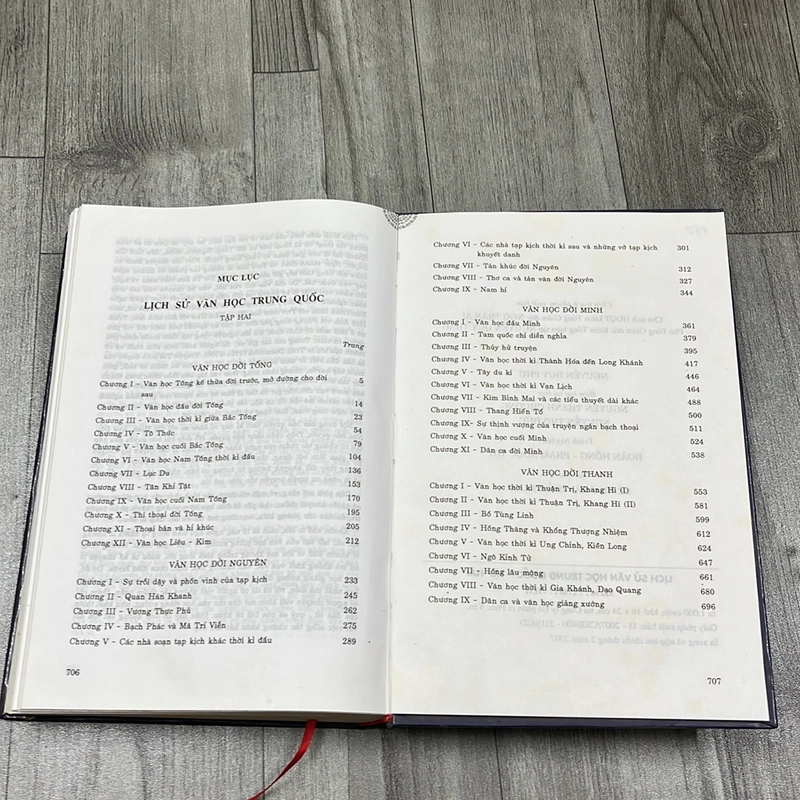 MỤC LỤC
LỊCH SỬ VĂN HỌC TRUNG QUỐC
TẬP HAI
Trang
VĂN HỌC ĐỜI TỐNG
Chương I - Văn học Tống kế thừa đời trước, mở đường cho đời 5
sau
Chương II - Văn học đầu đời Tống 14
Chương III - Văn học thời kì giữa Bắc Tống 23
Chương IV - Tô Thức 54
Chương V - Văn học cuối Bắc Tống 79
Chương VI - Văn học Nam Tống thời kì đầu 104
Chương VII - Lục Du 136
Chương VIII - Tân Khí Tật 153
Chương IX - Văn học cuối Nam Tống 170
Chương X - Thi thoại đời Tống 195
Chương XI - Thoại bản và hí khúc 205
Chương XII - Văn học Liêu - Kim 212
VĂN HỌC ĐỜI NGUYÊN
Chương I - Sự trỗi dậy và phồn vinh của tạp kịch 233
Chương II - Quan Hán Khanh 245
Chương III - Vương Thực Phủ 262
Chương IV - Bạch Phác và Mã Trí Viễn 275
Chương V - Các nhà soạn tạp kịch khác thời kì đầu 289
706
Chương VI - Các nhà tạp kịch thời kì sau và những vở tạp kịch 301
khuyết danh
Chương VII - Tản khúc đời Nguyên 312
Chương VIII - Thơ ca và tản văn đời Nguyên 327
Chương IX - Nam hí 344
VĂN HỌC ĐỜI MINH
Chương I - Văn học đầu Minh 361
Chương II - Tam quốc chí diễn nghĩa 379
Chương III - Thủy hử truyện 395
Chương IV - Văn học thời kì Thành Hóa đến Long Khánh 417
Chương V - Tây du kí 446
Chương VI - Văn học thời kì Vạn Lịch 464
Chương VII - Kim Bình Mai và các tiểu thuyết dài khác 488
Chương VIII - Thang Hiển Tổ 500
Chương IX- Sự thịnh vượng của truyện ngắn bạch thoại 511
Chương X - Văn học cuối Minh 524
Chương XI - Dân ca đời Minh 538
VĂN HỌC ĐỜI THANH
Chương I - Văn học thời kì Thuận Trị, Khang Hi (I) 553
Chương II - Văn học thời kì Thuận Trị, Khang Hi (II) 581
Chương III - Bồ Tùng Linh 599
Chương IV - Hồng Thăng và Khổng Thượng Nhiệm 612
Chương V - Văn học thời kì Ung Chính, Kiền Long 624
Chương VI - Ngô Kính Tử 647
Chương VII - Hồng lâu mộng 661
Chương VIII - Văn học thời kì Gia Khánh, Đạo Quang 680
Chương IX - Dân ca và văn học giảng xướng 696
707